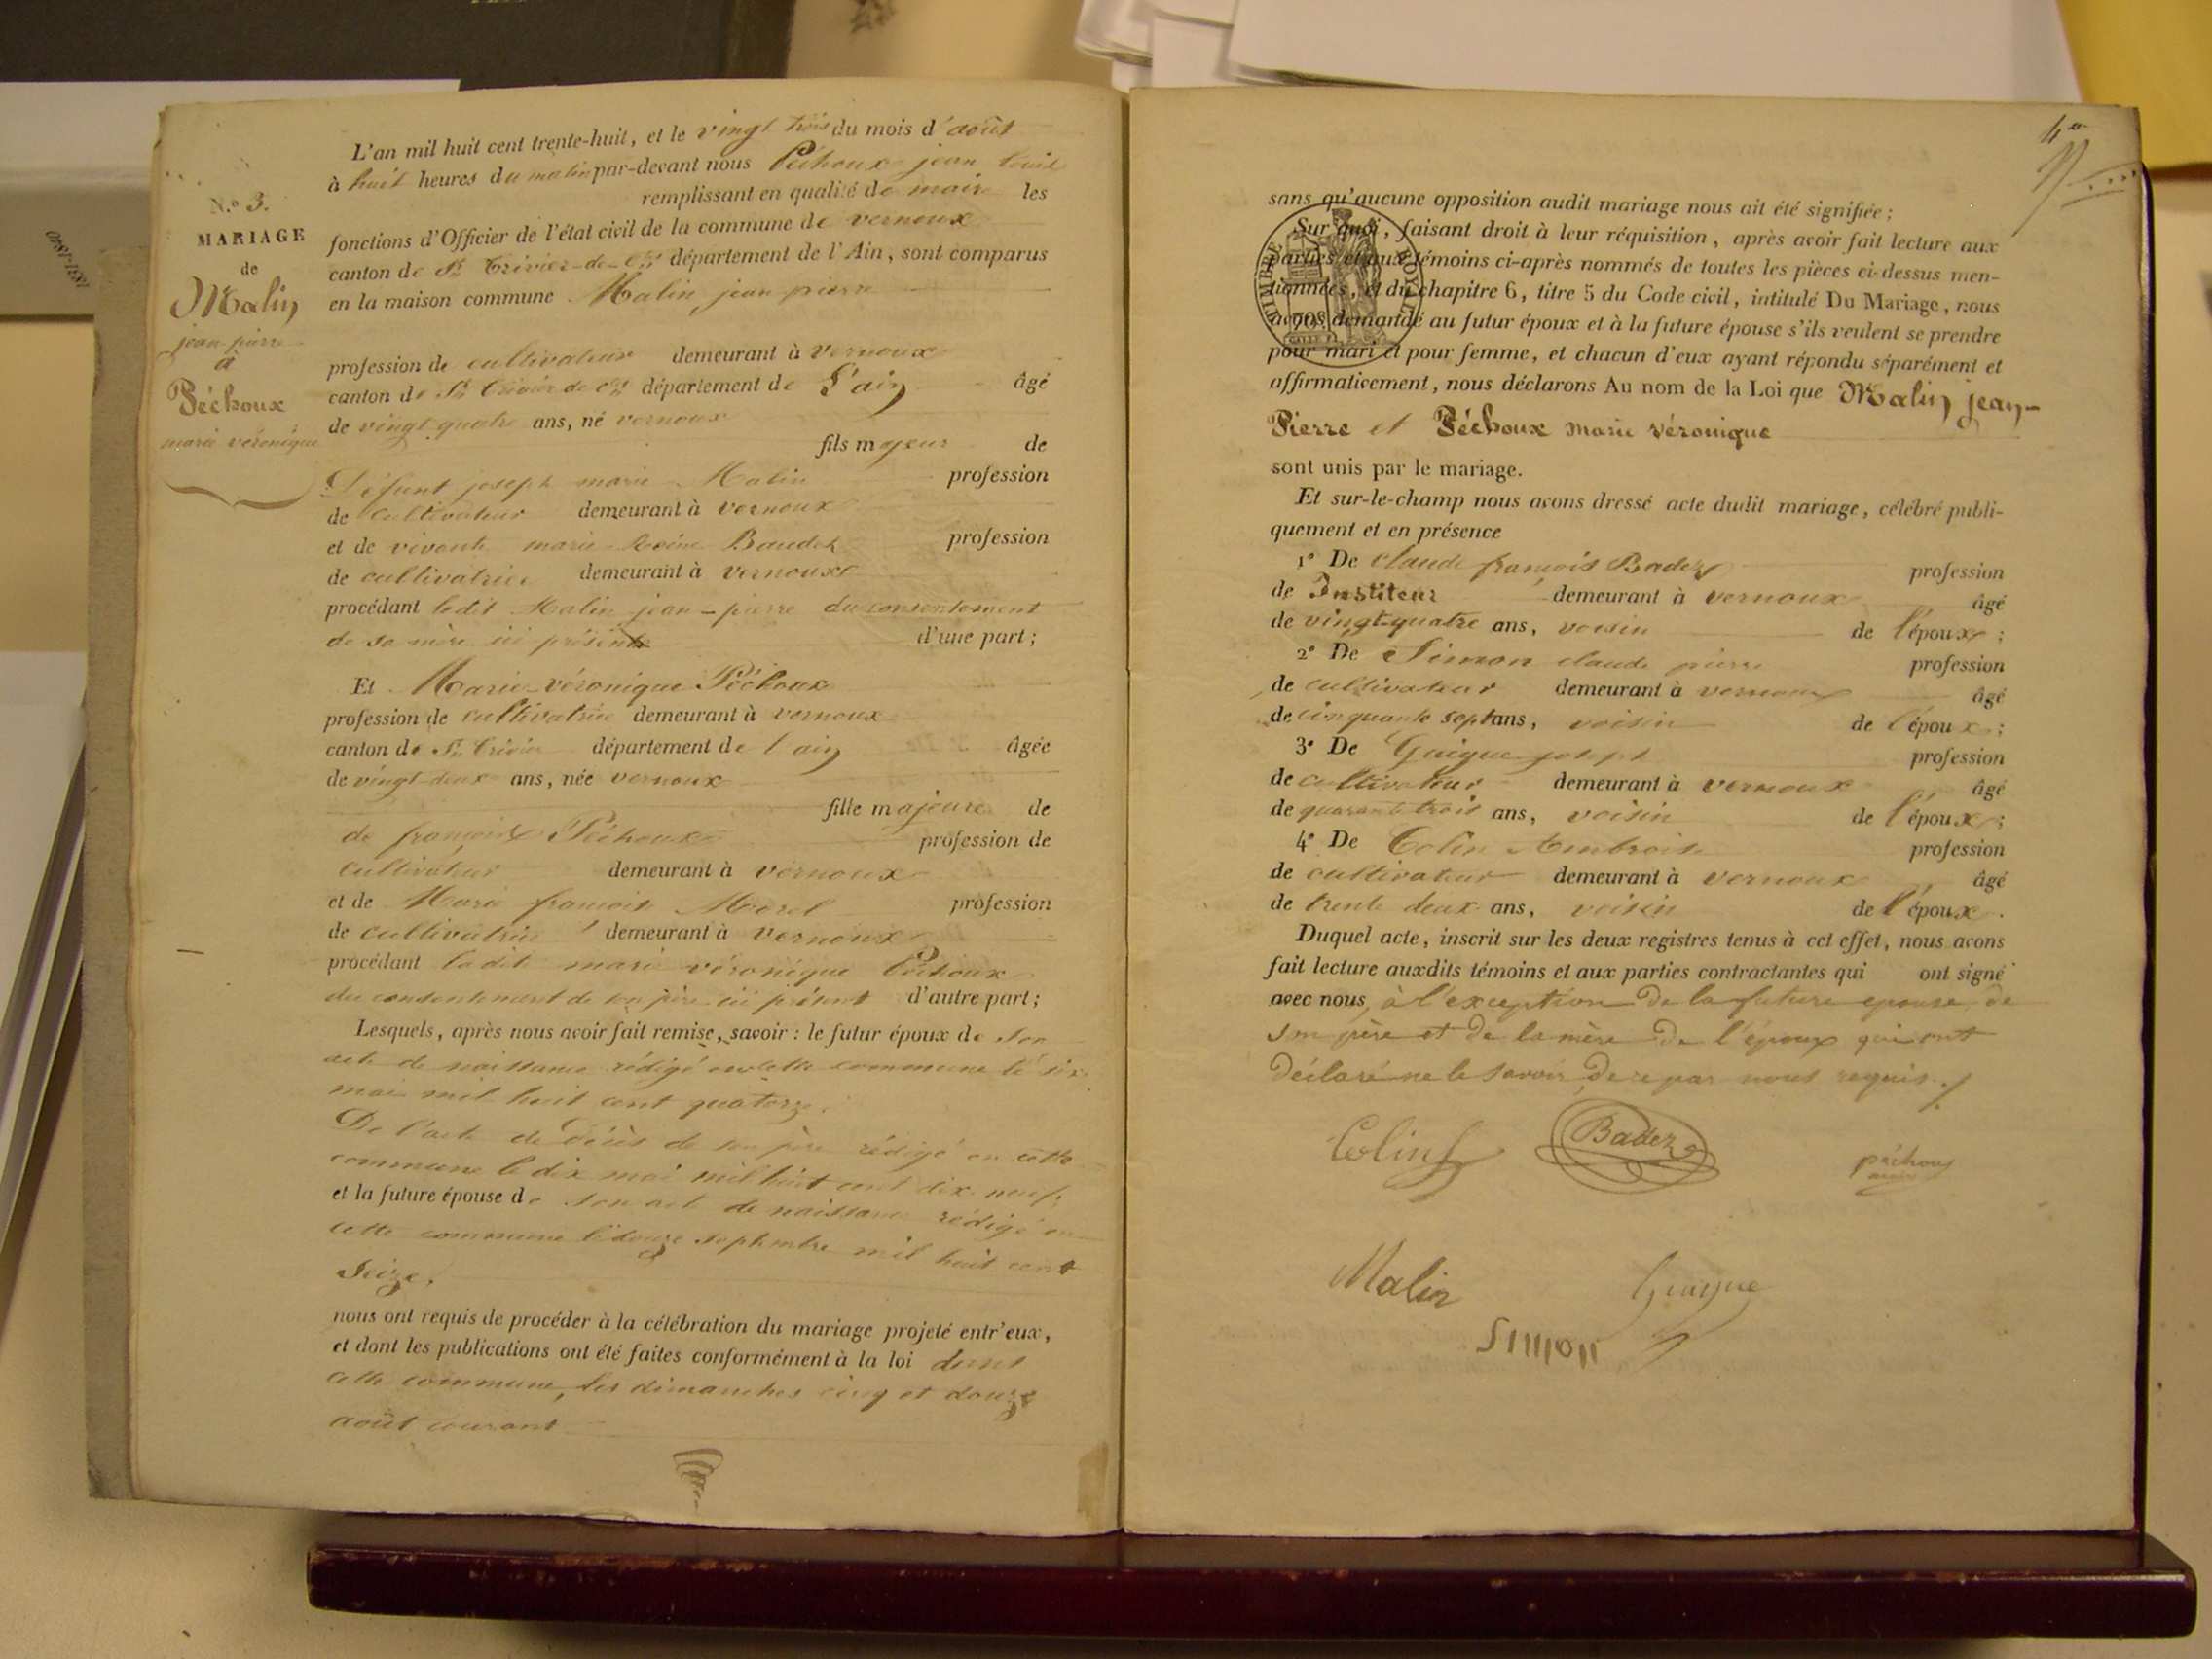 N.º 3.
MARIAGE
de
Malin
jean pierre
à
Péchoux
marie véronique
L'an mil huit cent trente-huit, et le vingt trois du mois d'août
à huit heures du matin par-devant nous Péchoux jean louis
remplissant en qualité de maire les
fonctions d'Officier de l'état civil de la commune de vernoux
canton de St Trivier-de-Ctes département de l'Ain, sont comparus
en la maison commune Malin jean pierre
profession de cultivateur demeurant à vernoux
canton de St Trivier de département de L'ain âgé
de vingt quatre ans, né vernoux
fils majeur de
Défunt joseph marie Malin profession
de cultivateur demeurant à vernoux
et de vivante marie Baudet profession
de cultivatrice demeurant à vernoux
procédant ledit Malin jean-pierre du consentement
de sa mère ici présente d'une part;
Et Marie véronique Péchoux
profession de cultivatrice demeurant à vernoux
canton de St Trivier département de l'ain âgée
de vingt-deux ans, née vernoux
fille majeure de
de françois Péchoux profession de
cultivateur demeurant à vernoux
et de Marie françoise Morel profession
de cultivatrice demeurant à vernoux
procédant ladite marie véronique Péchoux
du consentement de son père ici présent d'autre part;
Lesquels, après nous avoir fait remise, savoir: le futur époux de son
acte de naissance rédigé en cette commune le six
mai mil huit cent quatorze.
De l'acte de décès de son père rédigé en cette
commune le dix mai mil huit cent dix neuf,
et la future épouse de son acte de naissance rédigé en
cette commune le douze septembre mil huit cent
seize.
nous ont requis de procéder à la célébration du mariage projeté entr'eux,
et dont les publications ont été faites conformément à la loi dans
cette commune, les dimanches cinq et douze
août courant
sans qu'aucune opposition audit mariage nous ait été signifiée;
Sur quoi, faisant droit à leur réquisition, après avoir fait lecture aux
parties et aux témoins ci-après nommés de toutes les pièces ci-dessus men-
tionnées, et du chapitre 6, titre 5 du Code civil, intitulé Du Mariage, nous
avons demandé au futur époux et à la future épouse s'ils veulent se prendre
pour mari et pour femme, et chacun d'eux ayant répondu séparément et
affirmativement, nous déclarons Au nom de la Loi que Malin jean-
Pierre et Péchoux marie véronique
sont unis par le mariage.
Et sur-le-champ nous avons dressé acte dudit mariage, célébré publi-
quement et en présence
1º De claude françois Badez profession
de Instituteur demeurant à vernoux âgé
de vingt-quatre ans, voisin de l'époux;
2º De Simon claude pierre profession
de cultivateur demeurant à vernoux âgé
de cinquante sept ans, voisin de l'époux;
3º De Guigue joseph profession
de cultivateur demeurant à vernoux âgé
de quarante trois ans, voisin de l'époux;
4º De Colin Ambroise profession
de cultivateur demeurant à vernoux âgé
de trente deux ans, voisin de l'époux.
Duquel acte, inscrit sur les deux registres tenus à cet effet, nous avons
fait lecture auxdits témoins et aux parties contractantes qui ont signé
avec nous, à l'exception de la future epouse, de
son père et de la mère de l'époux qui ont
déclaré ne le savoir de ce par nous requis.
TIMBRE ROYAL
70c
Colin Badez péchoux
Malin Guigue
SIMON